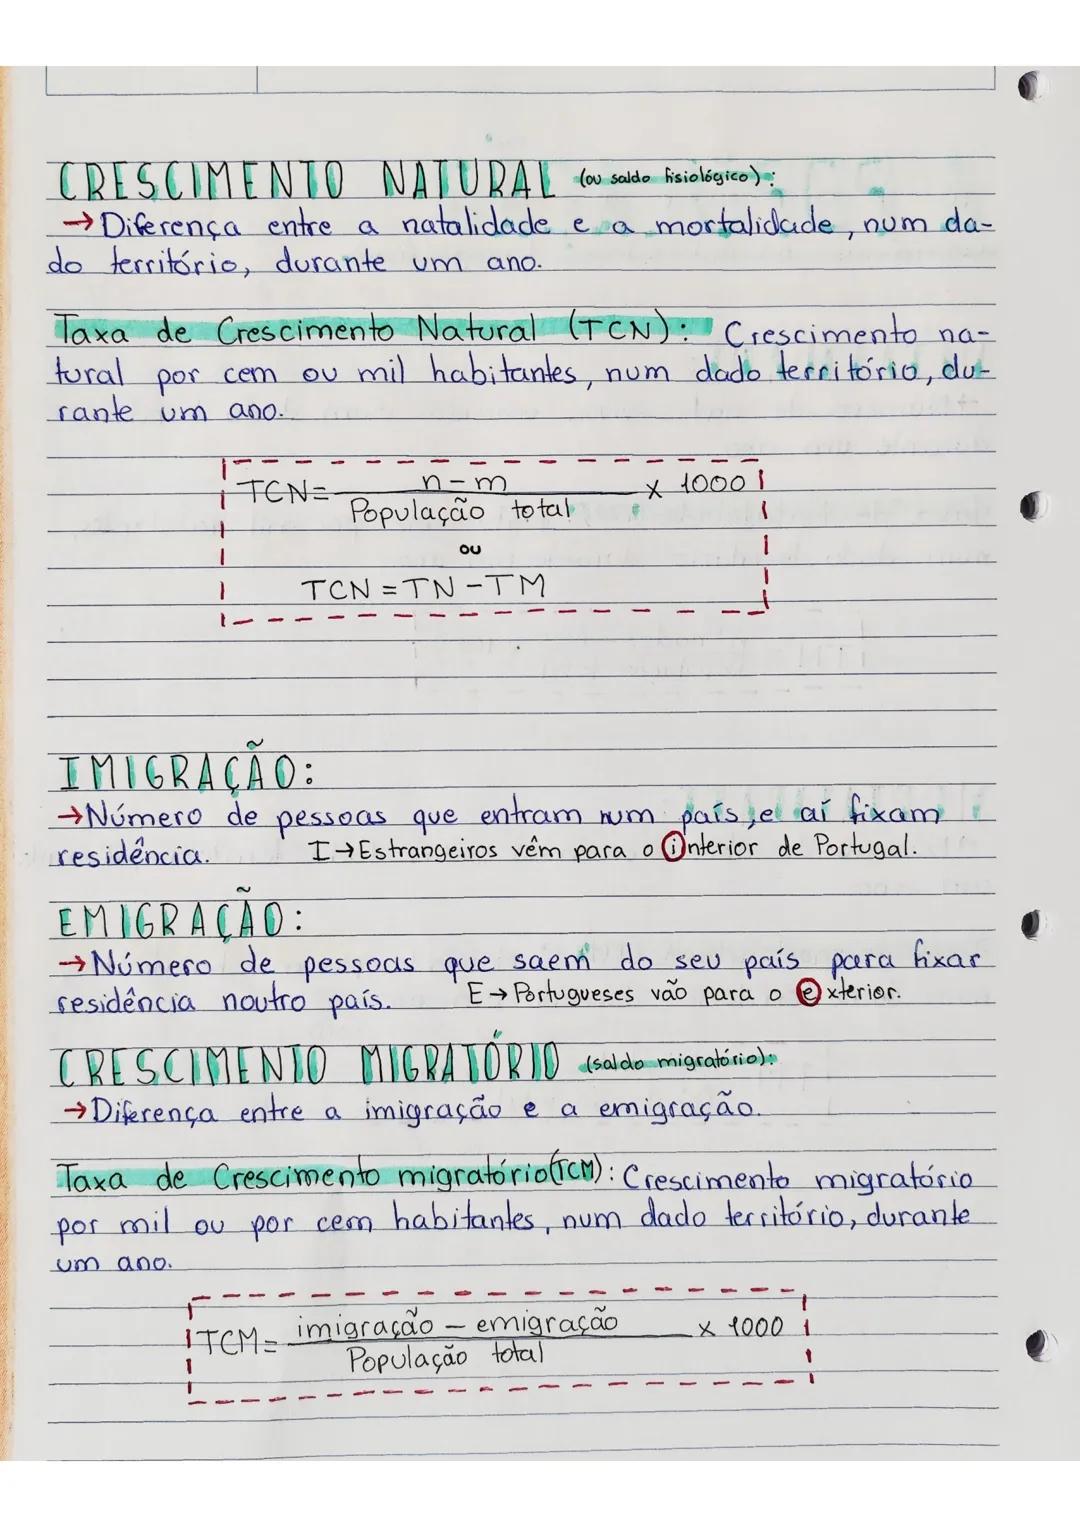 CRESCIMENTO NATURAL (ou saldo fisiológico):
→Diferença entre a natalidade e a mortalidade, num da-
do território, durante um ano.
Taxa de Crescimento Natural (TCN): Crescimento na-
tural por cem ou mil habitantes, num dado território, du-
rante um ano.
TCN= n-m x 1000
População total
ou
TCN = TN-TM
IMIGRAÇÃO:
→Número de pessoas que entram num país, e aí fixam
residência. I→Estrangeiros vêm para o interior de Portugal.
EMIGRAÇÃO:
→Número de pessoas que saem do seu país para fixar
residência noutro país. E→Portugueses vão para o exterior.
CRESCIMENTO MIGRATÓRIO (saldo migratório):
→Diferença entre a imigração e a emigração.
Taxa de Crescimento migratório(TCM): Crescimento migratório
por mil ou por cem habitantes, num dado território, durante
um ano.
TCM= imigração - emigração x 1000
População total